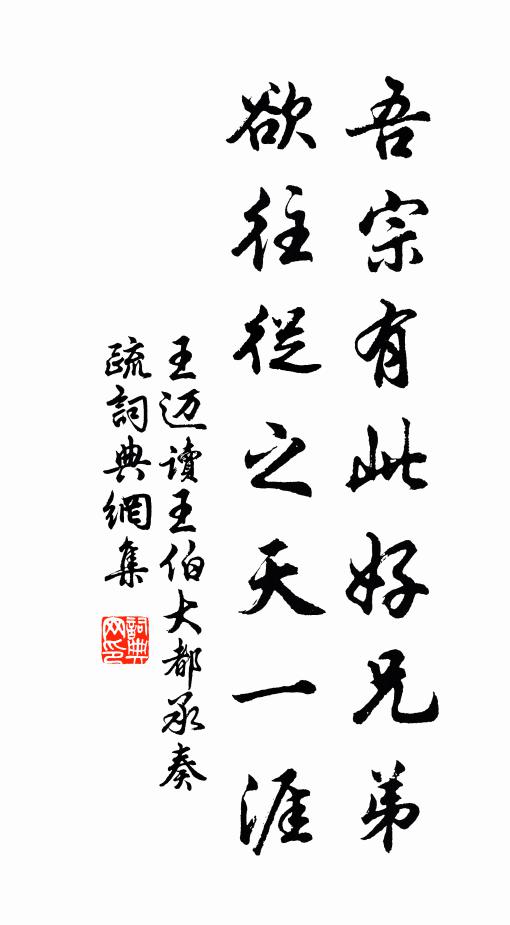 吾宗有此好兄弟
欲往從之天一涯
王迈讀王伯大都承奏
疏詞典網集
詞典网印